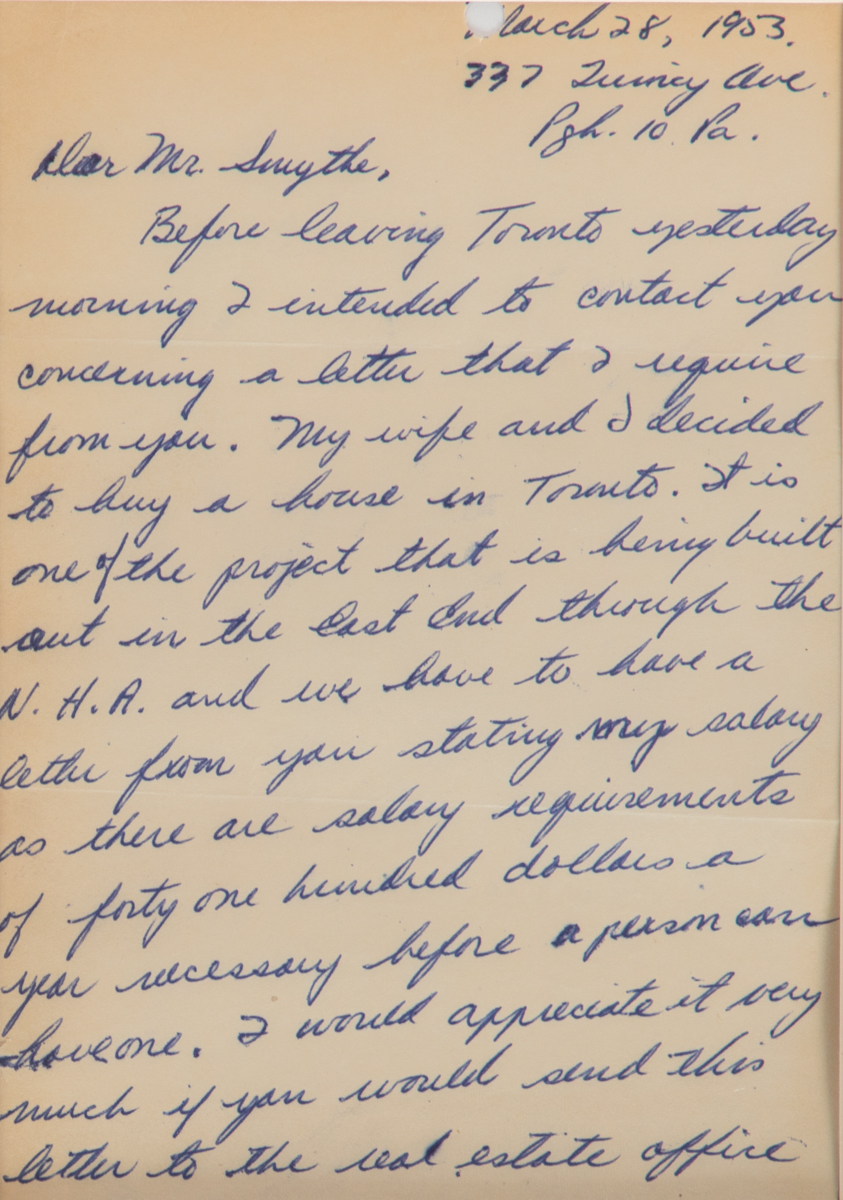 March 28, 1953.
337 Quincy Ave.
Pgh. 10. Pa.
Dear Mr. Smythe,
Before leaving Toronto yesterday
morning I intended to contact you
concerning a letter that I require
from you. My wife and I decided
to buy a house in Toronto. It is
one of the project that is being built
out in the East End through the
N.H.A. and we have to have a
letter from you stating my salary
as there are salary requirements
of forty one hundred dollars a
year necessary before a person can
have one. I would appreciate it very
much if you would send this
letter to the real estate office